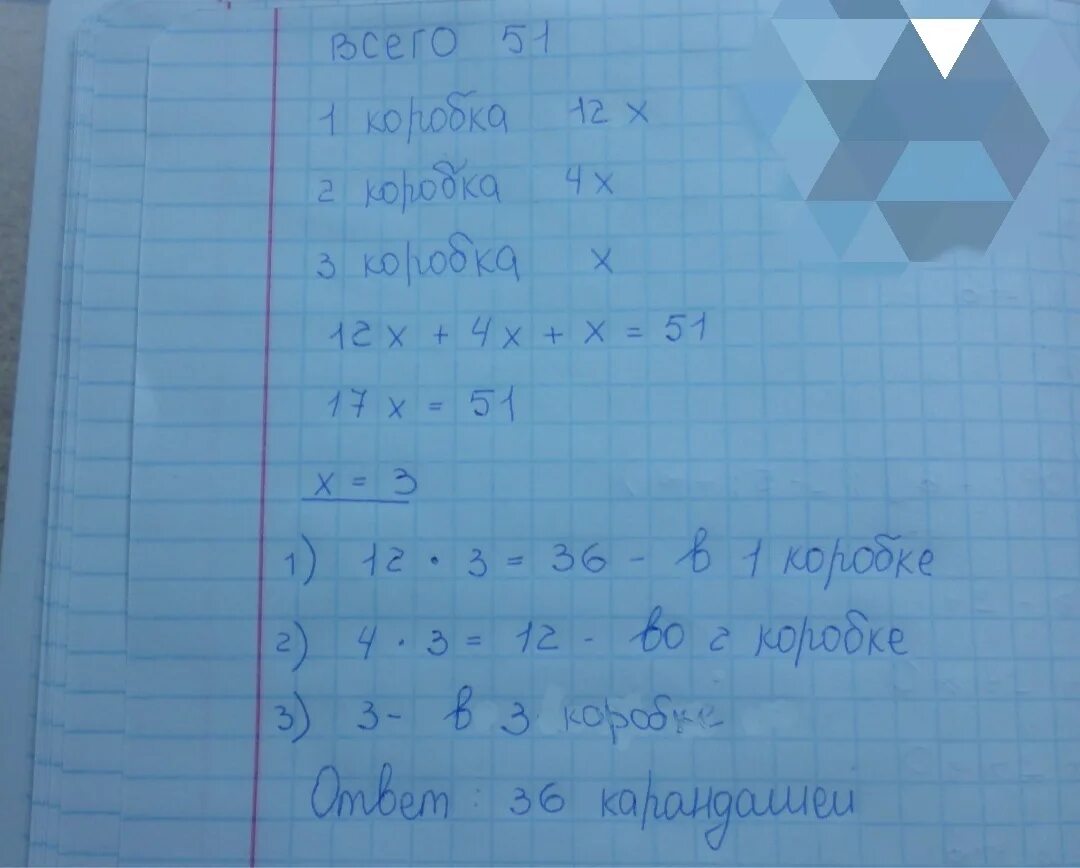 всего 51
1 коробка 12 х
2 коробка 4х
3 коробка х
12х + 4х + х = 51
17 х = 51
х = 3
1) 12 · 3 = 36 - в 1 коробке
2) 4 · 3 = 12 - во 2 коробке
3) 3 - в 3 коробке
Ответ : 36 карандашей